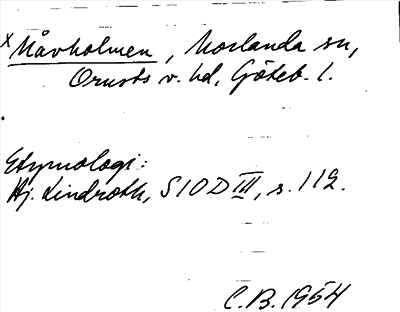 x Måvholmen, Morlanda sn,
Orusts v. hd, Göteb. l.
Etymologi:
Hj. Lindroth, SIOD III, s. 112.
C.B. 1954